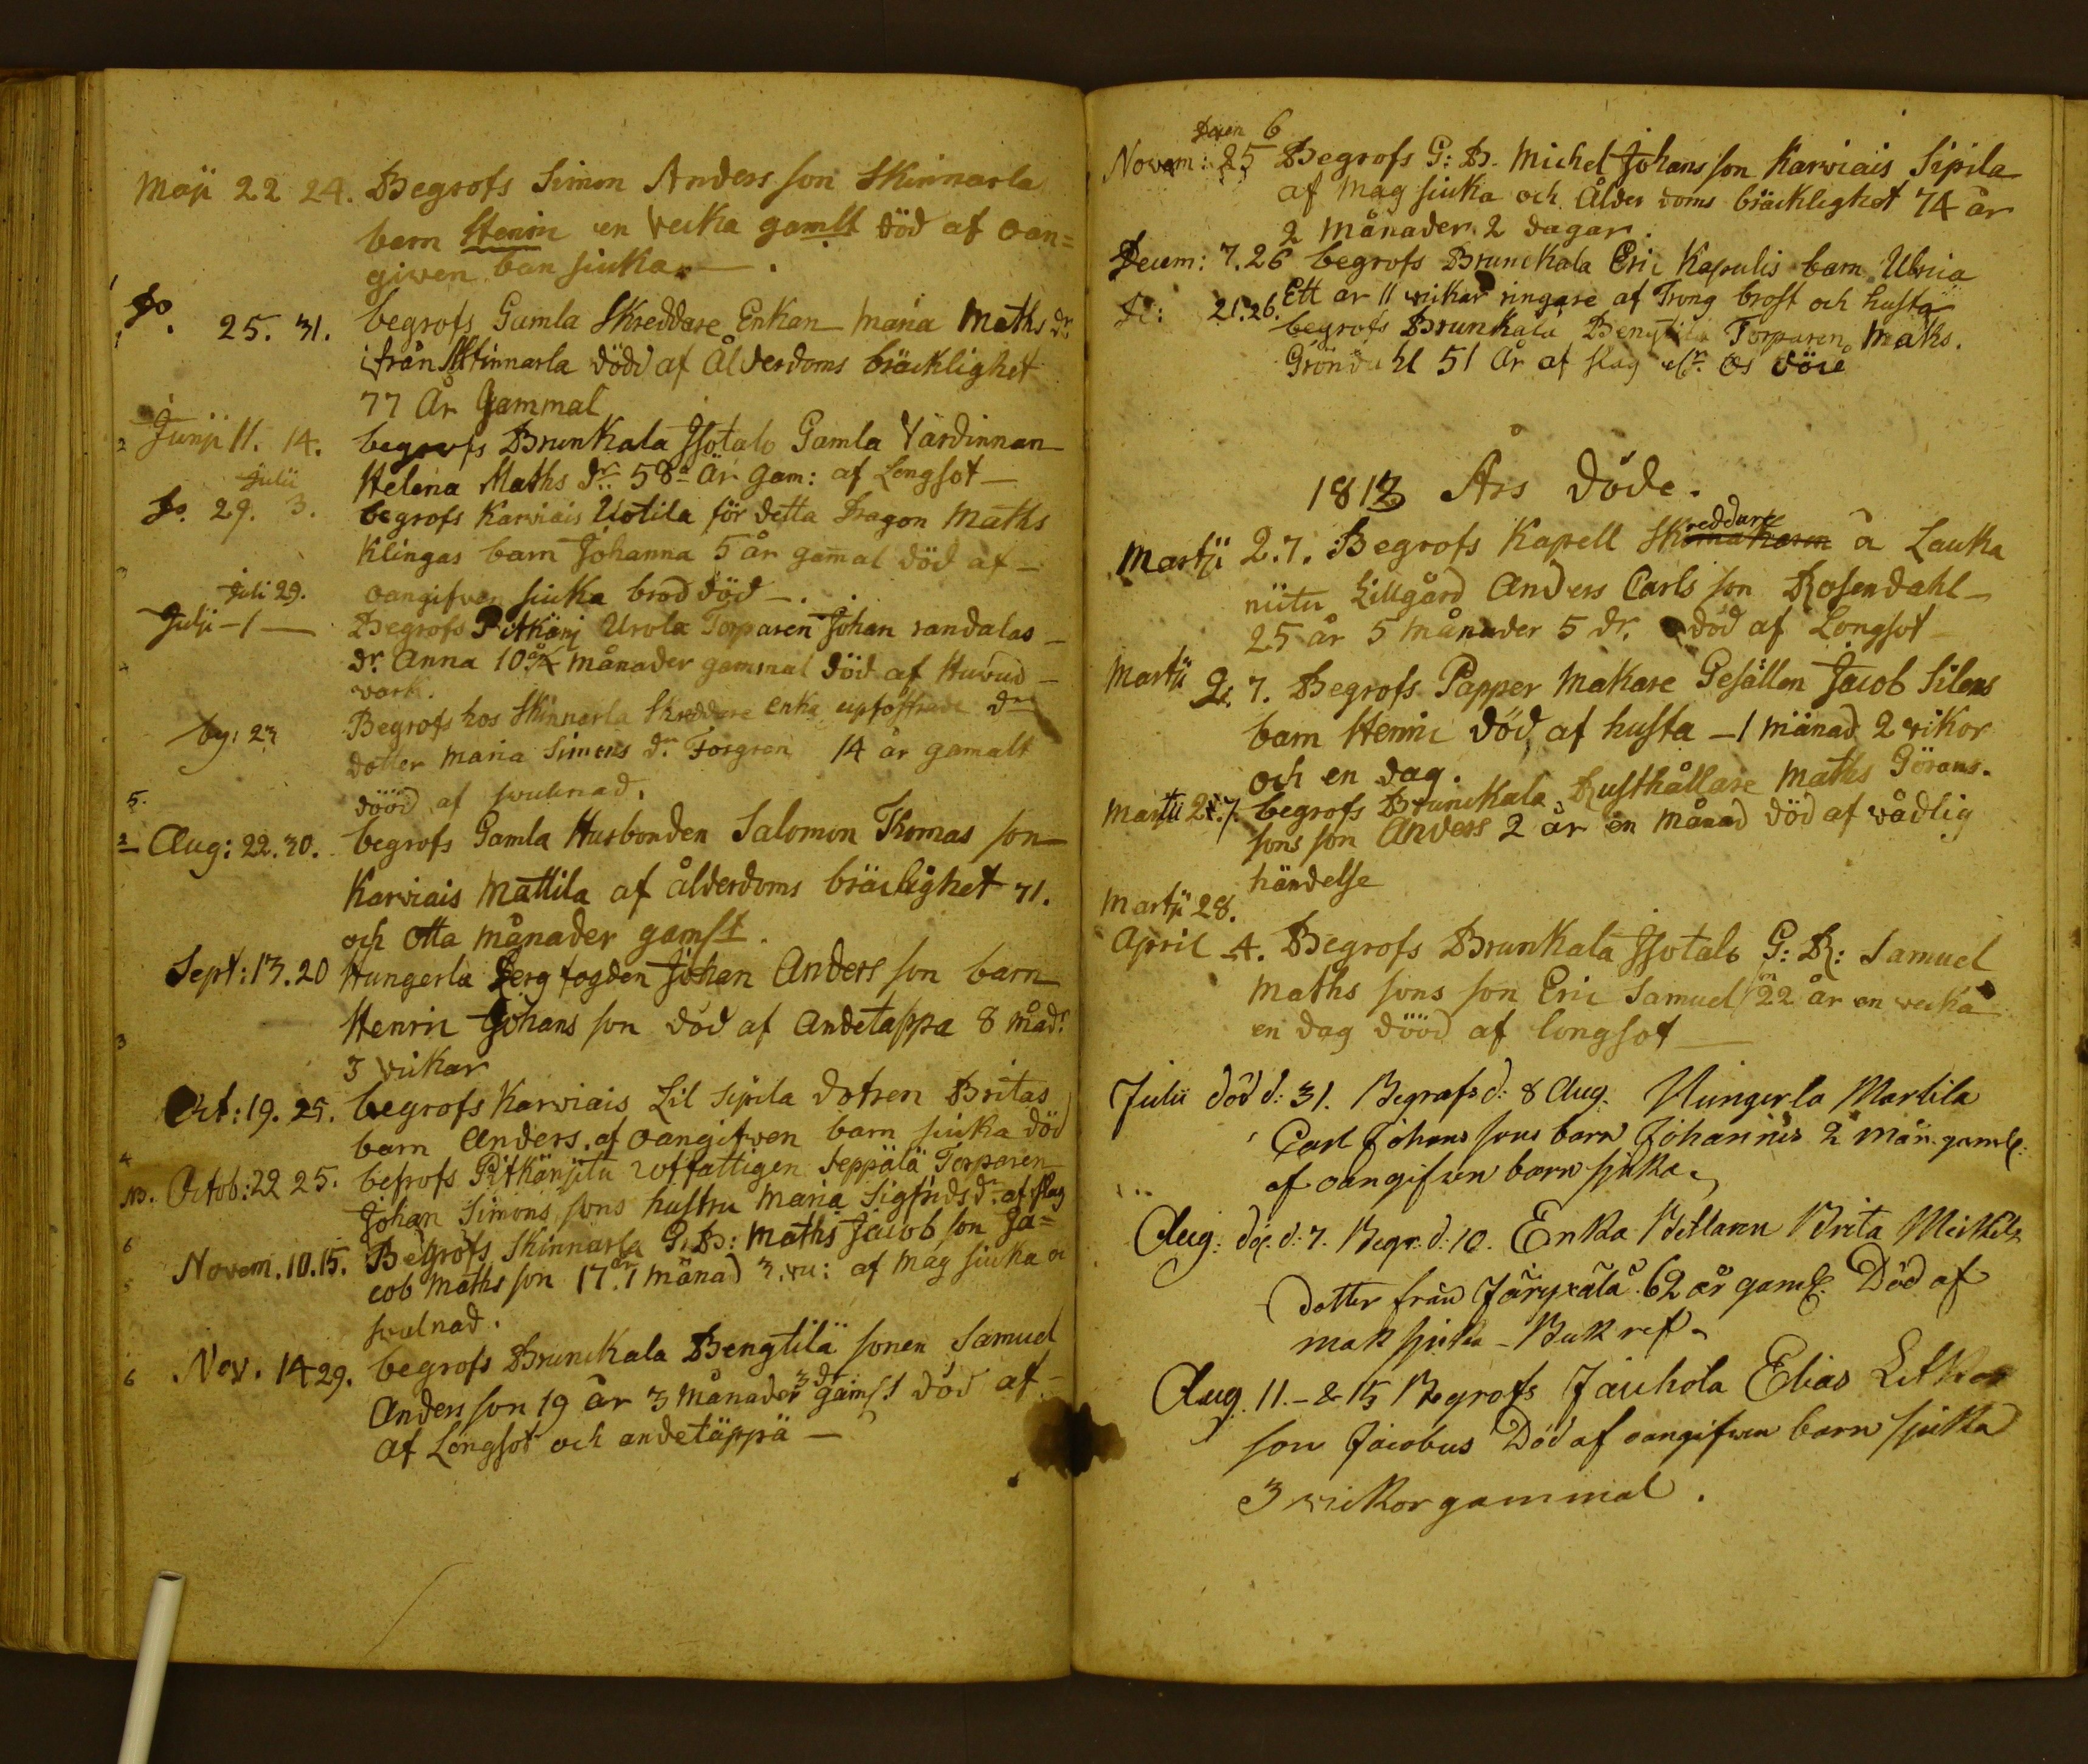 Maji 22 24. Begrofs Simon Anders son Skinnarla
barn Henric en vecka gamlt död af oan=
given ban siuka.
Do. 25. 31. begrofs Gamla Skreddare Enkan maria Maths dr.
ifrån Skinnarla dödd af Ålderdoms bräcklighet
77 År Gammal
2 Junji 11. 14. begrofs Brunkala Isotalo Gamla Värdinnan
Helena Maths dr. 58 År gam: af Longsot
Julii
Do. 29. 3. begrofs Karviais Uotila för detta Dragon Maths
Klingas barn Johanna 5 år gamal död af
Juli 29. oangifven siuka brod död.
Julji - 1 Begrofs Pitkänj Urola Torparen Johan randalas
dr. Anna 10 månader gammal död af Huvud
vark.
by: 23 Begrofs hos Skinnarla Skreddare enka upfostrade dr
dotter maria Simons dr. Forgren 14 år gamalt
dööd af svulnad.
5.
2 Aug: 22. 30. begrofs Gamla Husbonden Salomon Thomas son
Karviais Mattila af ålderdoms bräclighet 71.
och otta månader gamlt.
Sept: 13. 20 Hungerla Bergfogden Johan Anders son barn
3 Henric Johans son död af andetappa 8 måd:
3 vickar
Oct: 19. 25. begrofs Karviais Lil Sipila dotren Britas
4 barn Anders. af oangifven barn siuka död
No. Octob: 22 25. begrofs Pitkänjitu rotfattigen Seppälä Torparen
Johan Simons sons hustru Maria Sigfrids dr. af slag
6 Novem. 10. 15. Begrofs Skinnarla G. B: Maths Jacob son Ja=
5 cob Maths son 17 år 1 månad 3. vu: af mag siuka o
svulnad.
6 Nov. 14 29. begrofs Brunckala Bengtilä sonen Samuel
Anders son 19 år 3 månader 3 d gamlt död af
af Longsot och andetäppä
Decem 6
Novem: 25 Begrofs G: B. Michel Johans son Karviais Sipila
af mag siuka och Ålder doms bräcklighet 74 år
2 månader 2 dagar.
Decem: 7. 26 begrofs Brunckala Eric Kapulis barn Ulrica
Ett ar 11 vickar ringare af Trong brost och husta
D: 21. 26. begrofs Brunkala Bengtila Torparen Maths.
Gröndahl 51 År af slag
1813 Års döde.
Martji 2. 7. Begrofs Kapell Skomakaren reddare å Lauka
niitu Lillgård Anders Carls son Rosendahl
25 år 5 månader 5 dr. död af Longsot
Martji 2. 7. Begrofs Papper Makare Gesällen Jacob Silens
barn Henric död af husta - 1 månad 2 vikor
och en dag.
Martii 2. 7. begrofs Brunckala Rusthållare Maths Görans.
sons son Anders 2 år en månad död af vådlig
händelse
Martji 28.
April 4. Begrofs Brunkala Isotalo G: B: Samuel
Maths sons son Eric Samuel sn 22 år en vecka
en dag dööd af longsot
Julii död d: 31. Begrafs d: 8 Aug. Hungerla Martila
Carl Johans sons barn Johannes 2 mån. gamlt
af oangifven barn sjuka
Aug: döe. d: 7. Begr. d: 10. Enka Betlaren Brita Meikels
dotter från Järyxälä 62 år gaml. Död af
mak sjuka - Buk ref
Aug. 11. - & 15 Begrofs Jauhola Elias
son Jacobus Död af oangifven barn sjuka
3 vickor gammal.